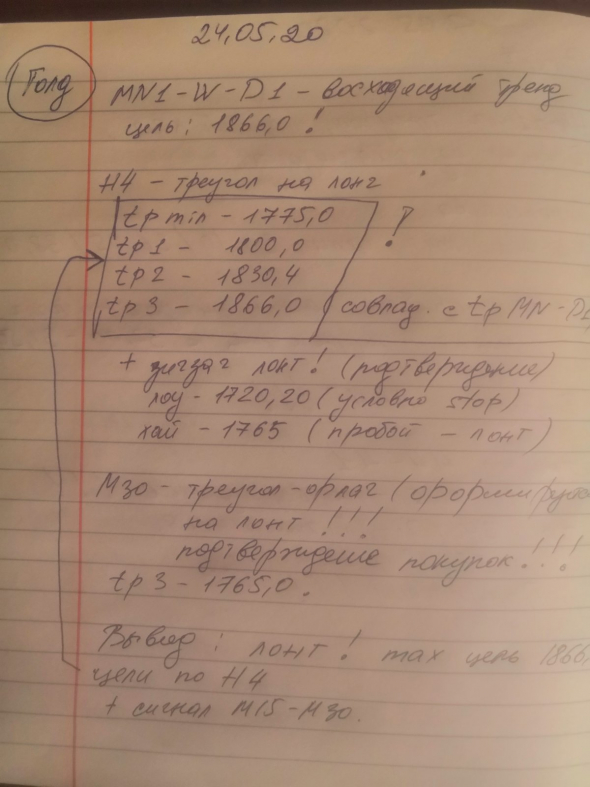 24.05.20
Голд
MN1-W-D1 - восходящий тренд
цель: 1866,0 !
H4 - треугол на лонг
tp min - 1775,0
!
tp1 - 1800,0
tp2 - 1830,4
tp3 - 1866,0 совпад. с tp MN-D1
+ зигзаг лонг! (подтверждение)
лоу - 1720,20 (условно stop)
хай - 1765 (пробой - лонг)
М30 - треугол-флаг
на лонг !!!
подтверждение покупок !!!
tp3 - 1765,0.
Вывод: лонг! max цель 1866,
цели по H4
+ сигнал М15-М30.